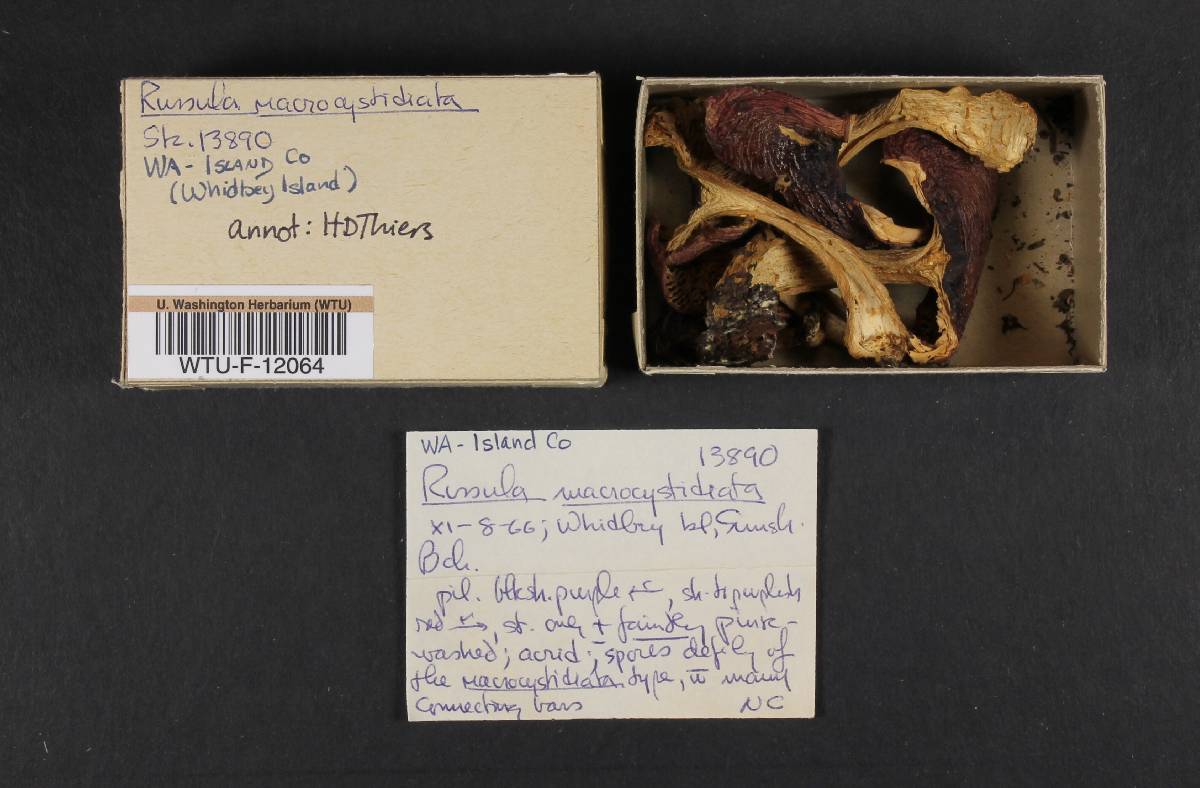 Russula macrocystidiata
Stz. 13890
WA - ISLAND Co
(Whidbey Island)
annot: HDThiers
U. Washington Herbarium (WTU)
WTU-F-12064
WA - Island Co
13890
Russula macrocystidiata
XI-8-66; Whidbey Isl, Sunsh.
Bch.
pil. blksh. purple, purplish
red, st. only ± faintly pink-
washed; acrid; spores defily of
the macrocystidiata type, w many
connecting bars
NC